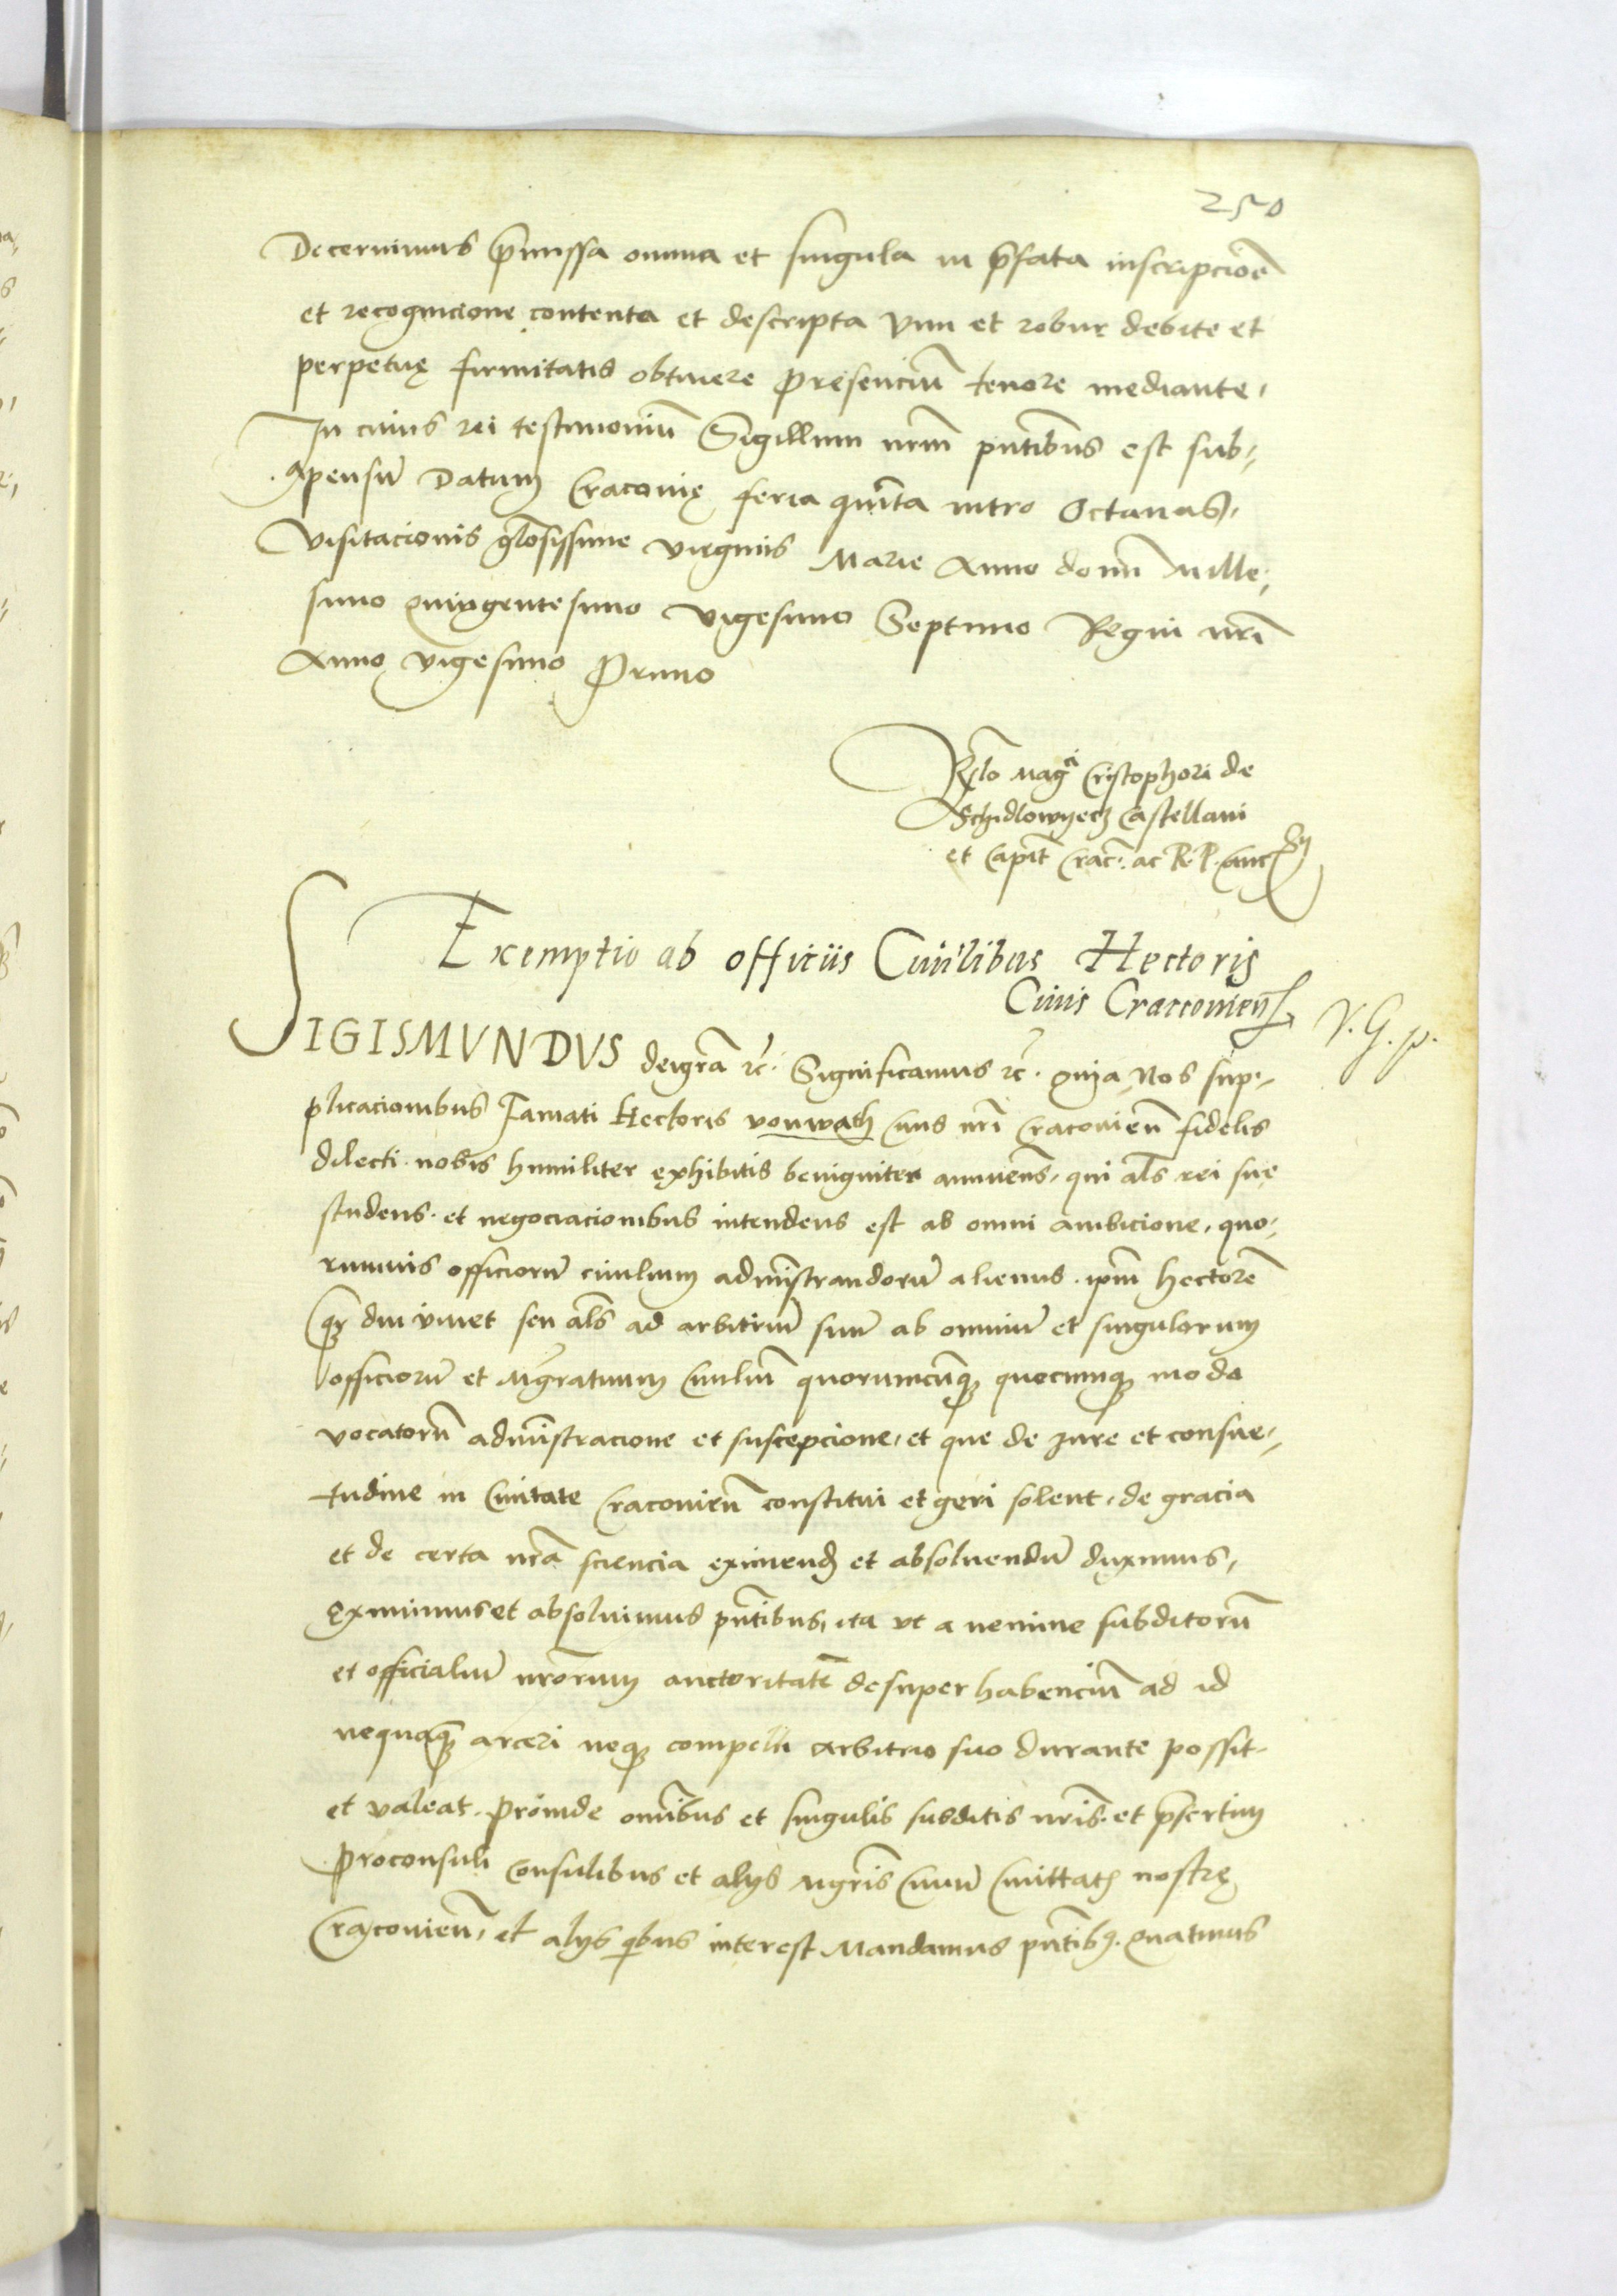 250
Decernimus p̄missa omnia et singula in p̄fata inscripcioē
et recognicione contenta et descripta Vim et robur debite et
perpetuę firmitatis obtinere presenciū tenore mediante,
In cuius rei testimoniū Sigillum nr̄m pn̄tibus est sub-
apensū Datum Cracovię feria quīta intro Octauas,
Visitacionis glōsissime virginis Marie Anno domī Mille,
simo quingentesimo Vigesimo Septimo Regni nrī
Anno vigesimo Primo
Rel̄o Mag̃ci Cristophori de
Schidlowyecz Castellani
et Capit̄ Crac̄. ac R. P. Canc̄
Exemptio ab officiis Ciuilibus Hectoris
Ciuis Craccovieñ
V. G. p.
SIGISMVNDVS deigrā rc̄. Significamus rc̄. quia Nos sup-
plicacionibus Famati Hectoris vonwath Ciuis nrī Cracovieñ fidelis
dilecti nobis humiliter exhibitis benigniter annuens̄, qui als̄ rei suę
studens. et negociacionibus intendens est ab omni ambicione, quo-
rumuis officiorū ciuilium admīstrandorū alienus. ipm̄ hectorē
qz̄ diu viuet seu als̄ ad arbitriū suū ab omniū et singularum
officiorū et Mgr̄atuum Ciuiliū quorumcūqz quocumqz modo
vocatorū admīstracione et suscepcione, et que de jure et consue-
tudine in Ciuitate Cracovieñ constitui et geri solent, de gracia
et de certa nr̄a sciencia eximend̄ et absoluendū duximus,
Eximimus et absoluimus pn̄tibus, ita vt a nemine subditorū
et officialiū nr̄orum auctoritatē desuper habenciū ad id
nequaqz̄ arceri neqz compelli arbitrio suo durante possit
et valeat. Proinde omībus et singulis subditis nr̄is. et p̄sertim
Proconsuli Consulibus et alijs Mgr̄is Ciuiū Ciuittatis nostrę
Cracovieñ, et alijs qibus interest Mandamus pn̄tibz. quatinus